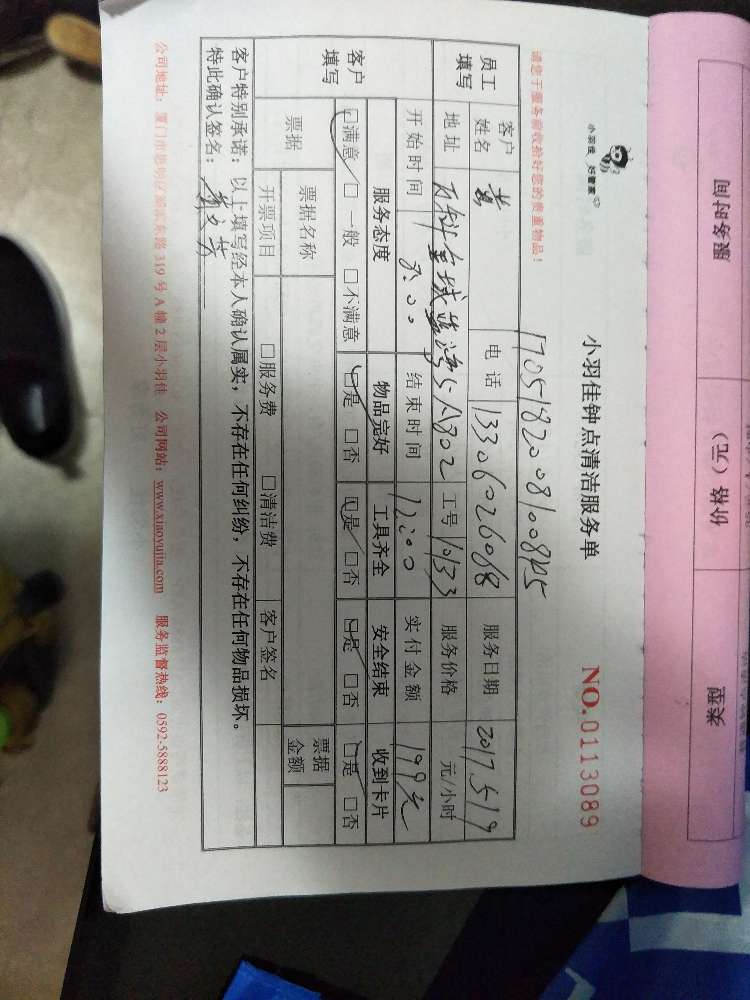 小羽佳 好管家
小羽佳钟点清洁服务单
NO.0113089
请您于服务前收拾好您的贵重物品!
员工填写
客户姓名 黄 电话 13306026068 服务日期 2017.5.19
地址 万科金域蓝湾5A802 工号 10133 服务价格 元/小时
开始时间 8:00 结束时间 12:00 实付金额 199元
客户填写
服务态度 物品完好 工具齐全 安全结束 收到卡片
☑满意 □一般 □不满意 ☑是 □否 ☑是 □否 ☑是 □否 ☑是 □否
票据 票据名称 票据金额
开票项目 □服务费 □清洁费 客户签名
客户特别承诺:以上填写经本人确认属实,不存在任何纠纷,不存在任何物品损坏。
特此确认签名:
公司地址:厦门市思明区湖滨东路319号A幢2层小羽佳 公司网站:www.xiaoyujia.com 服务监督热线:0592-5888123
服务时间 价格(元) 类型